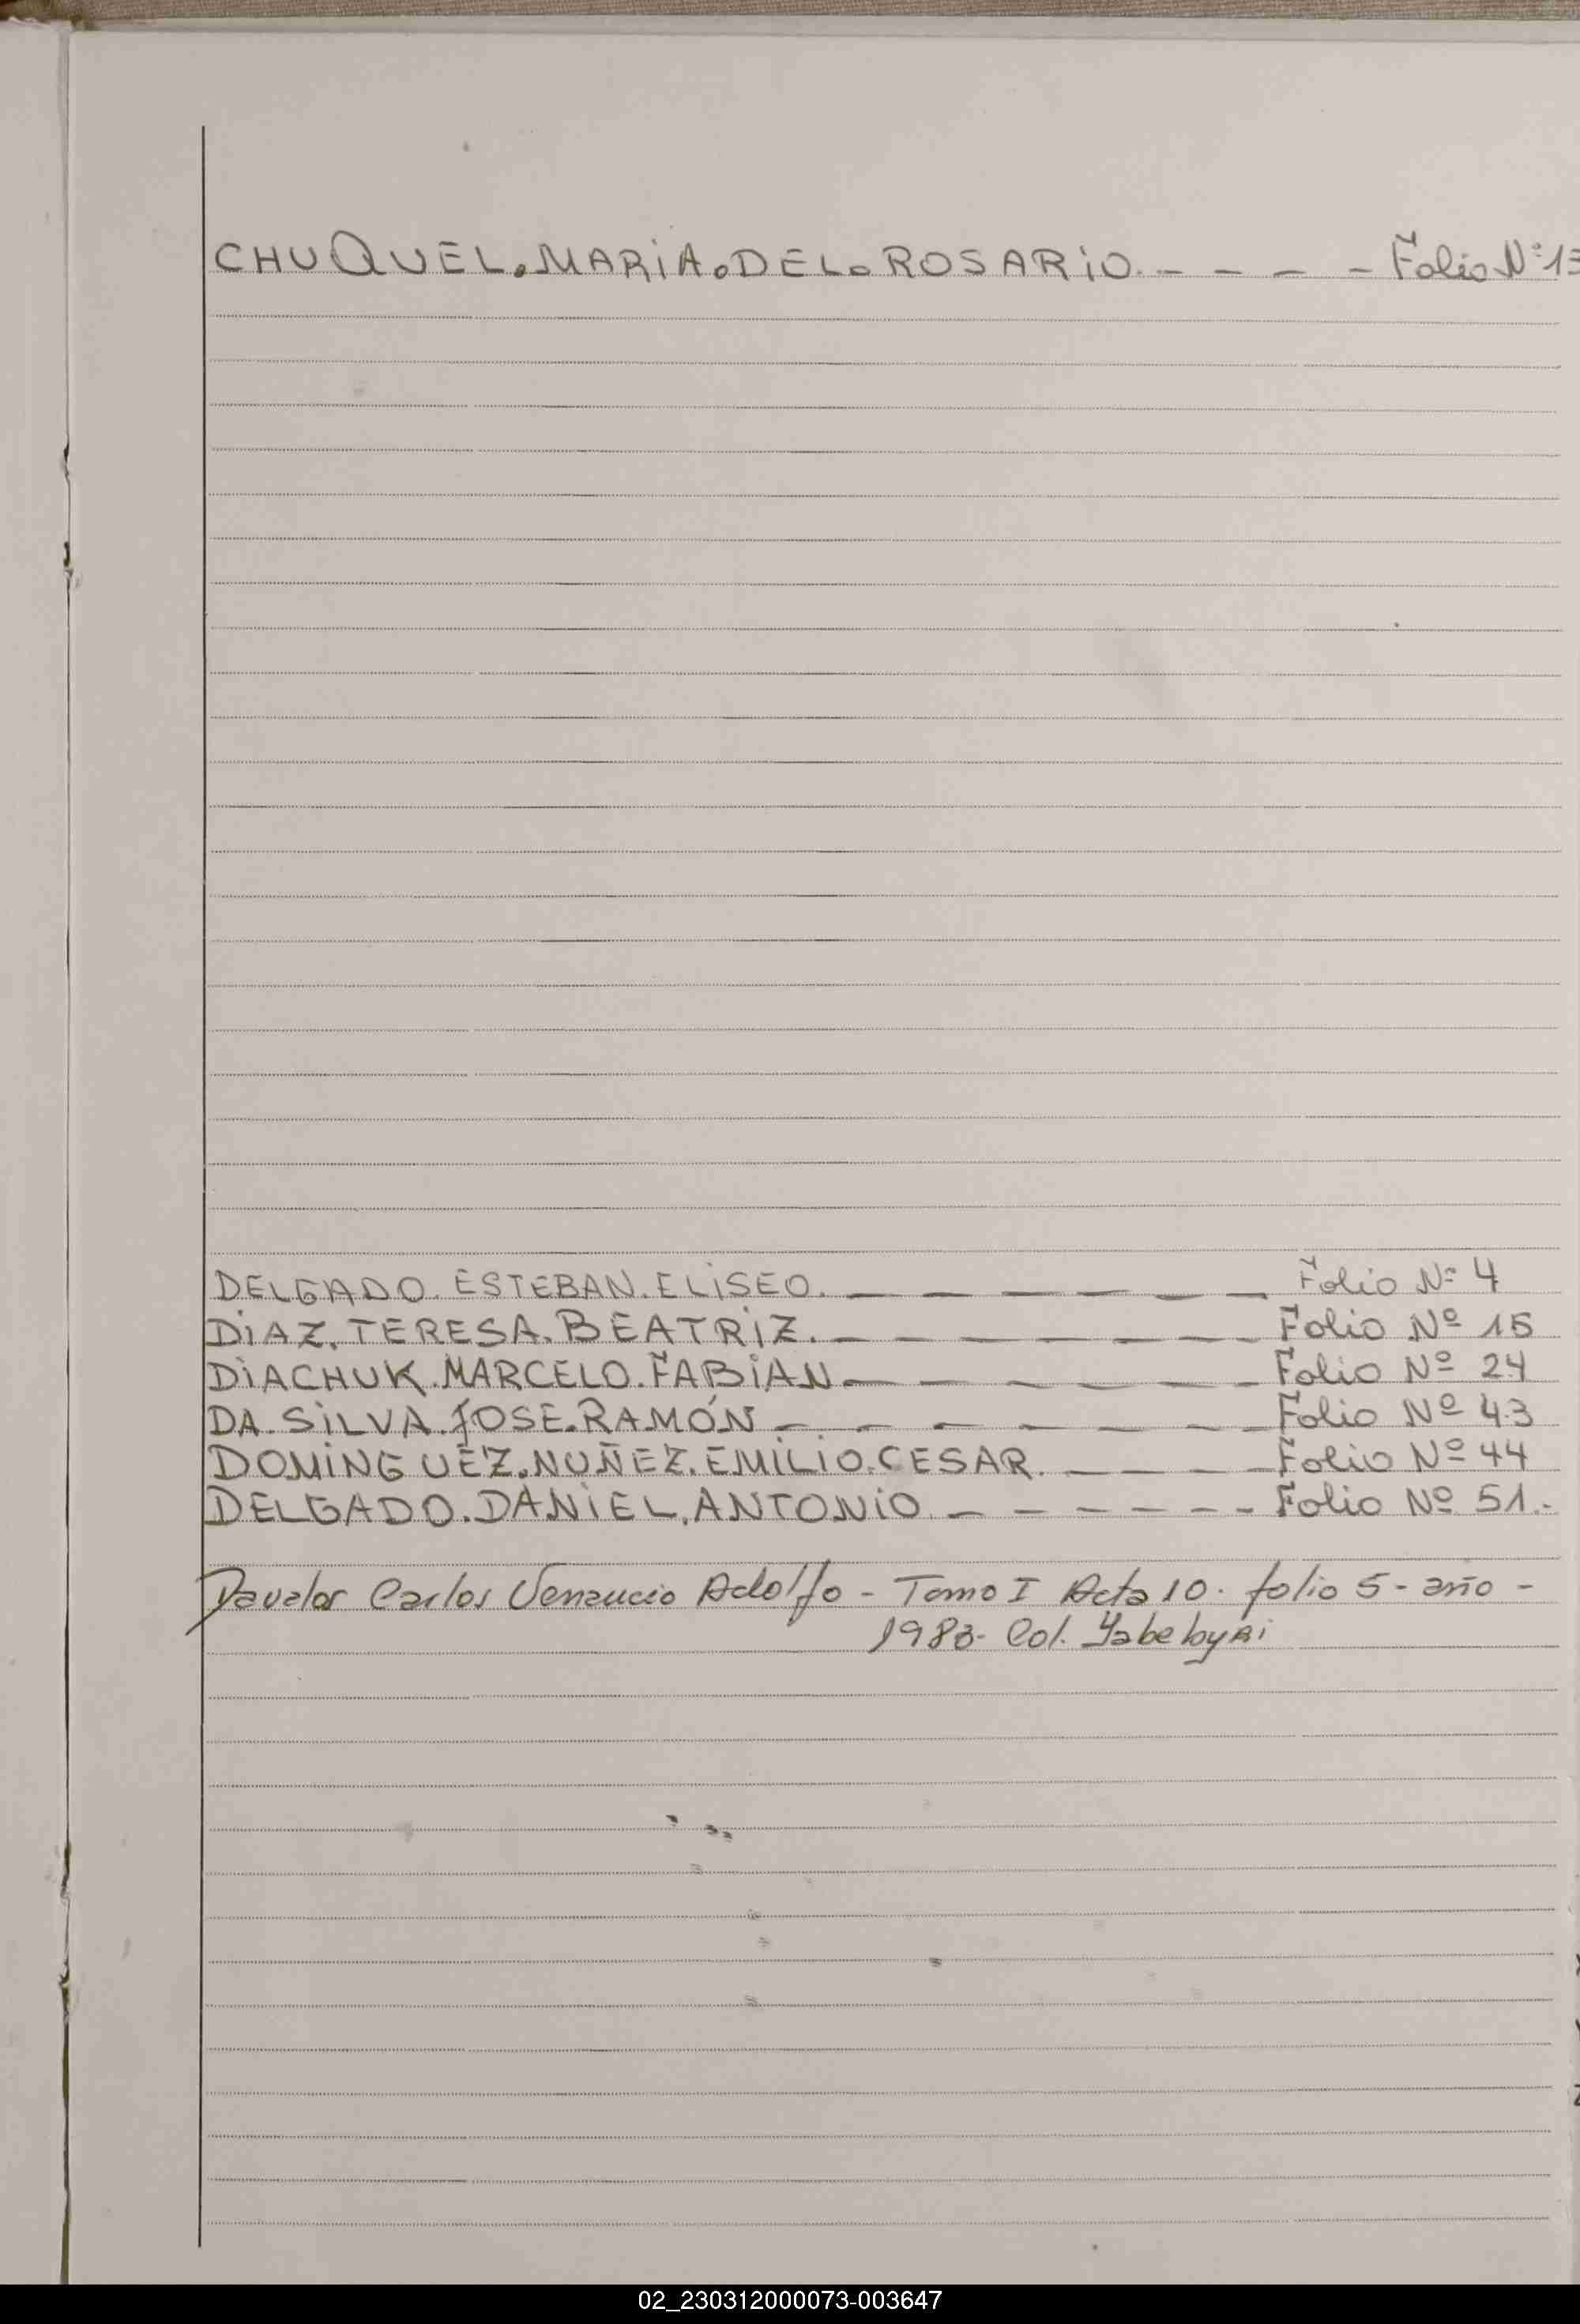 CHUQUEL. MARIA. DEL. ROSARIO. - - - - Folio Nº 13
DELGADO. ESTEBAN. ELISEO. - - - - - - Folio Nº 4
DIAZ. TERESA. BEATRIZ. - - - - - - - Folio Nº 15
DIACHUK. MARCELO. FABIAN - - - - - - Folio Nº 24
DA. SILVA. JOSE. RAMÓN - - - - - - - Folio Nº 43
DOMINGUEZ. NUÑEZ. EMILIO. CESAR. - - - - Folio Nº 44
DELGADO. DANIEL. ANTONIO - - - - - - Folio Nº 51.-
Davalos Carlos Venancio Adolfo - Tomo I Acta 10. folio 5 - año -
1983- Col. Yabebyri
02_230312000073-003647